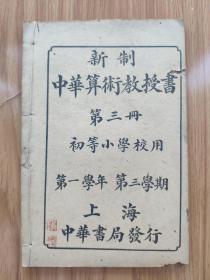 新制
中華算術教授書
第三冊
初等小學校用
第一學年 第三學期
上海
中華書局發行